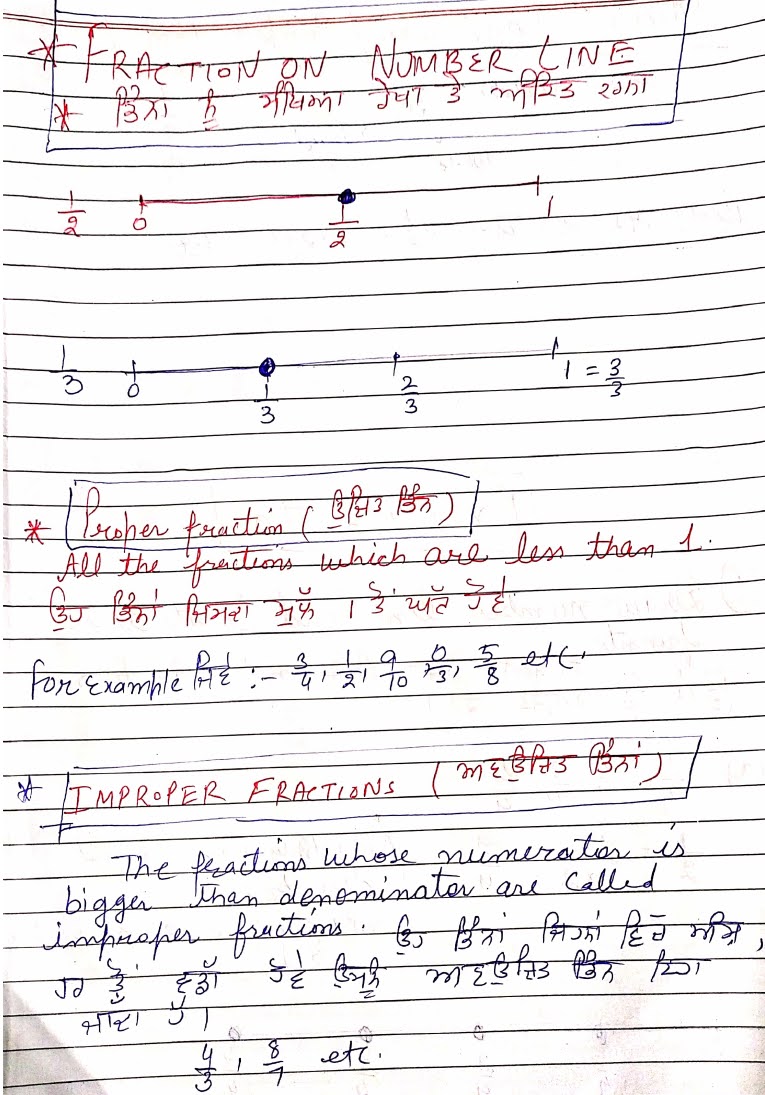 * FRACTION ON NUMBER LINE
* ਭਿੰਨਾਂ ਨੂੰ ਸੰਖਿਆ ਰੇਖਾ ਤੇ ਅੰਕਿਤ ਕਰਨਾ
1/2 0 1/2 1
1/3 0 1/3 2/3 1 = 3/3
* Proper fraction ( ਉਚਿਤ ਭਿੰਨ )
All the fractions which are less than 1.
ਉਹ ਭਿੰਨਾਂ ਜਿਸਦਾ ਮੁੱਲ 1 ਤੋਂ ਘੱਟ ਹੋਵੇ
for Example ਜਿਵੇਂ :- 3/4, 1/2, 9/10, 0/3, 5/8 etc.
* IMPROPER FRACTIONS ( ਅਣਉਚਿਤ ਭਿੰਨਾਂ )
The fractions whose numerator is
bigger than denominator are called
improper fractions. ਉਹ ਭਿੰਨਾਂ ਜਿਹਨਾਂ ਵਿੱਚ ਅੰਸ਼,
ਹਰ ਤੋਂ ਵੱਡਾ ਹੋਵੇ ਉਸਨੂੰ ਅਣਉਚਿਤ ਭਿੰਨ ਕਿਹਾ
ਜਾਂਦਾ ਹੈ।
4/3, 8/7 etc.